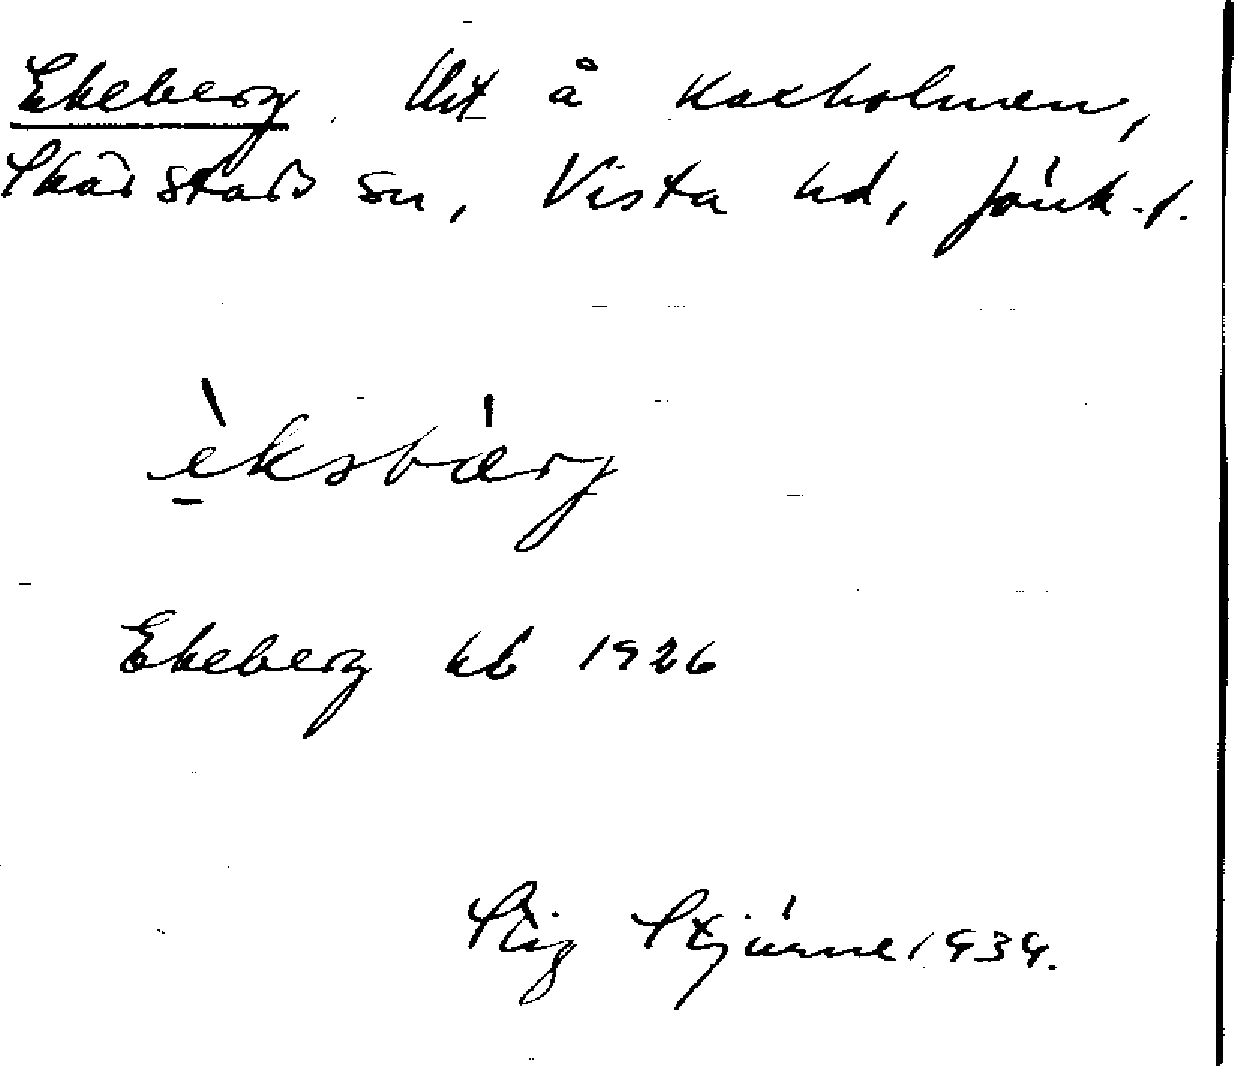 Ekeberg Urt å Kaxholmen,
Skärstads sn, Vista hd, Jönk. l.
èksbärj
Ekeberg kb 1926
Stig Stjärne 1939.